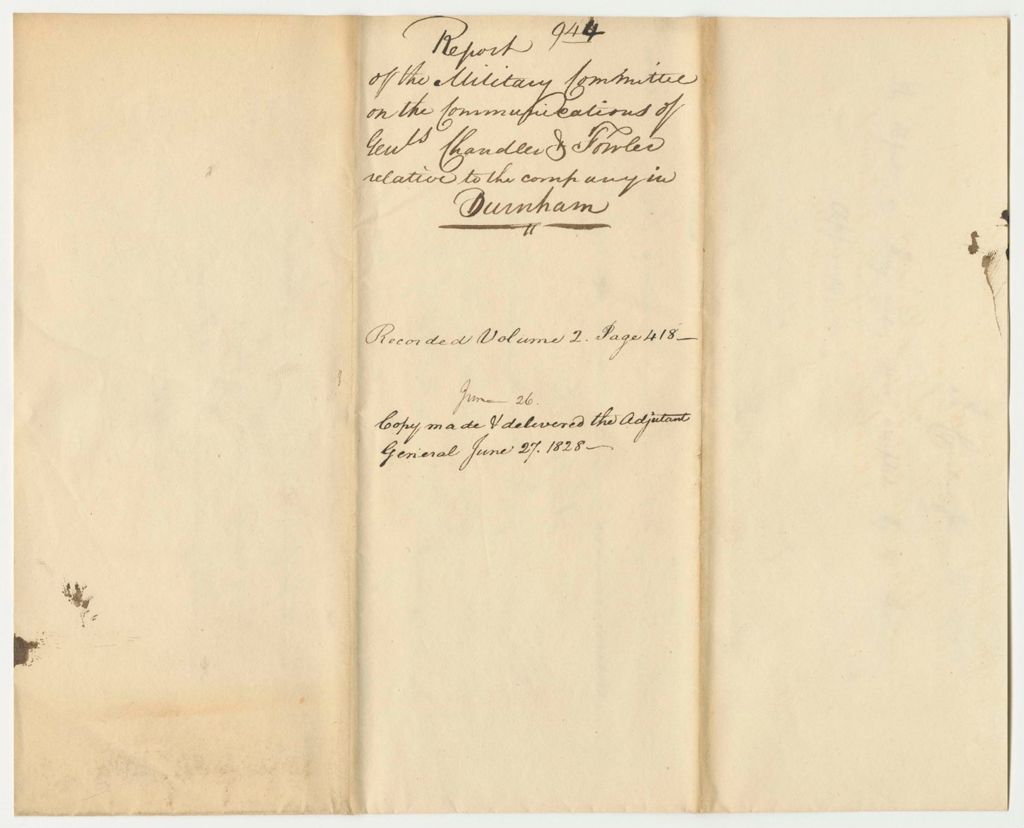 Report 944
of the Military Committee
on the Communications of
Genls Chandler & Fowler
relative to the company in
Durnham
Recorded Volume 2. Page 418—
June 26.
Copy made & delivered the Adjutant
General June 27. 1828—